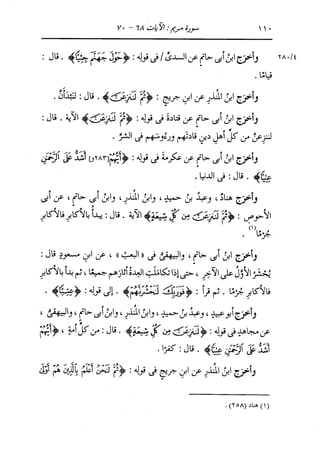 ١١٠ سورة مريم : الآيات ٦٨ - ٧٠
٢٨٠/٤ وأخرج ابنُ أبى حاتمٍ عن السدىِّ / فى قولِه : ﴿حَوْلَ جَهَنَّمَ جِثِيًّا﴾ . قال :
قيامًا .
وأخرج ابنُ المنذرِ عن ابنِ جريجٍ : ﴿ثُمَّ لَنَنزِعَنَّ﴾ . قال : لَنَبْدأَنَّ .
وأخرج ابنُ أبى حاتمٍ عن قتادةَ فى قولِه : ﴿ثُمَّ لَنَنزِعَنَّ﴾ الآية . قال :
لننزعنَّ من كلِّ أهلِ دينٍ قادتَهم ورءوسَهم فى الشرِّ .
وأخرج ابنُ أبى حاتمٍ عن عكرمةَ فى قولِه : ﴿أَيُّهُمْ [٢٨٣و] أَشَدُّ عَلَى ٱلرَّحْمَٰنِ
عِتِيًّا﴾ . قال : فى الدنيا .
وأخرج هنادٌ ، وعبدُ بنُ حميدٍ ، وابنُ المنذرِ ، وابنُ أبى حاتمٍ ، عن أبى
الأحوصِ : ﴿ثُمَّ لَنَنزِعَنَّ مِن كُلِّ شِيعَةٍ﴾ الآية . قال : يبدأُ بالأكابرِ فالأكابرِ
جُرْمًا(١) .
وأخرج ابنُ أبى حاتمٍ ، والبيهقىُّ فى « البعثِ » ، عن ابنِ مسعودٍ قال :
يُحشَرُ الأوَّلُ على الآخِرِ ، حتى إذا تكامَلَت العِدةُ أثارَهم جميعًا ، ثم بدأ بالأكابرِ
فالأكابرِ جُرْمًا . ثم قرأ : ﴿فَوَرَبِّكَ لَنَحْشُرَنَّهُمْ﴾ . إلى قولِه : ﴿عِتِيًّا﴾ .
وأخرج أبو عبيدٍ ، وعبدُ بنُ حميدٍ ، وابنُ المنذرِ ، وابنُ أبى حاتمٍ ، والبيهقىُّ ،
عن مجاهدٍ فى قولِه : ﴿ثُمَّ لَنَنزِعَنَّ مِن كُلِّ شِيعَةٍ﴾ . قال : من كلِّ أمةٍ ، ﴿أَيُّهُمْ
أَشَدُّ عَلَى ٱلرَّحْمَٰنِ عِتِيًّا﴾ . قال : كفرًا .
وأخرج ابنُ المنذرِ عن ابنِ جريجٍ فى قولِه : ﴿ثُمَّ لَنَحْنُ أَعْلَمُ بِٱلَّذِينَ هُمْ أَوْلَىٰ
(١) هناد (٢٥٨) .